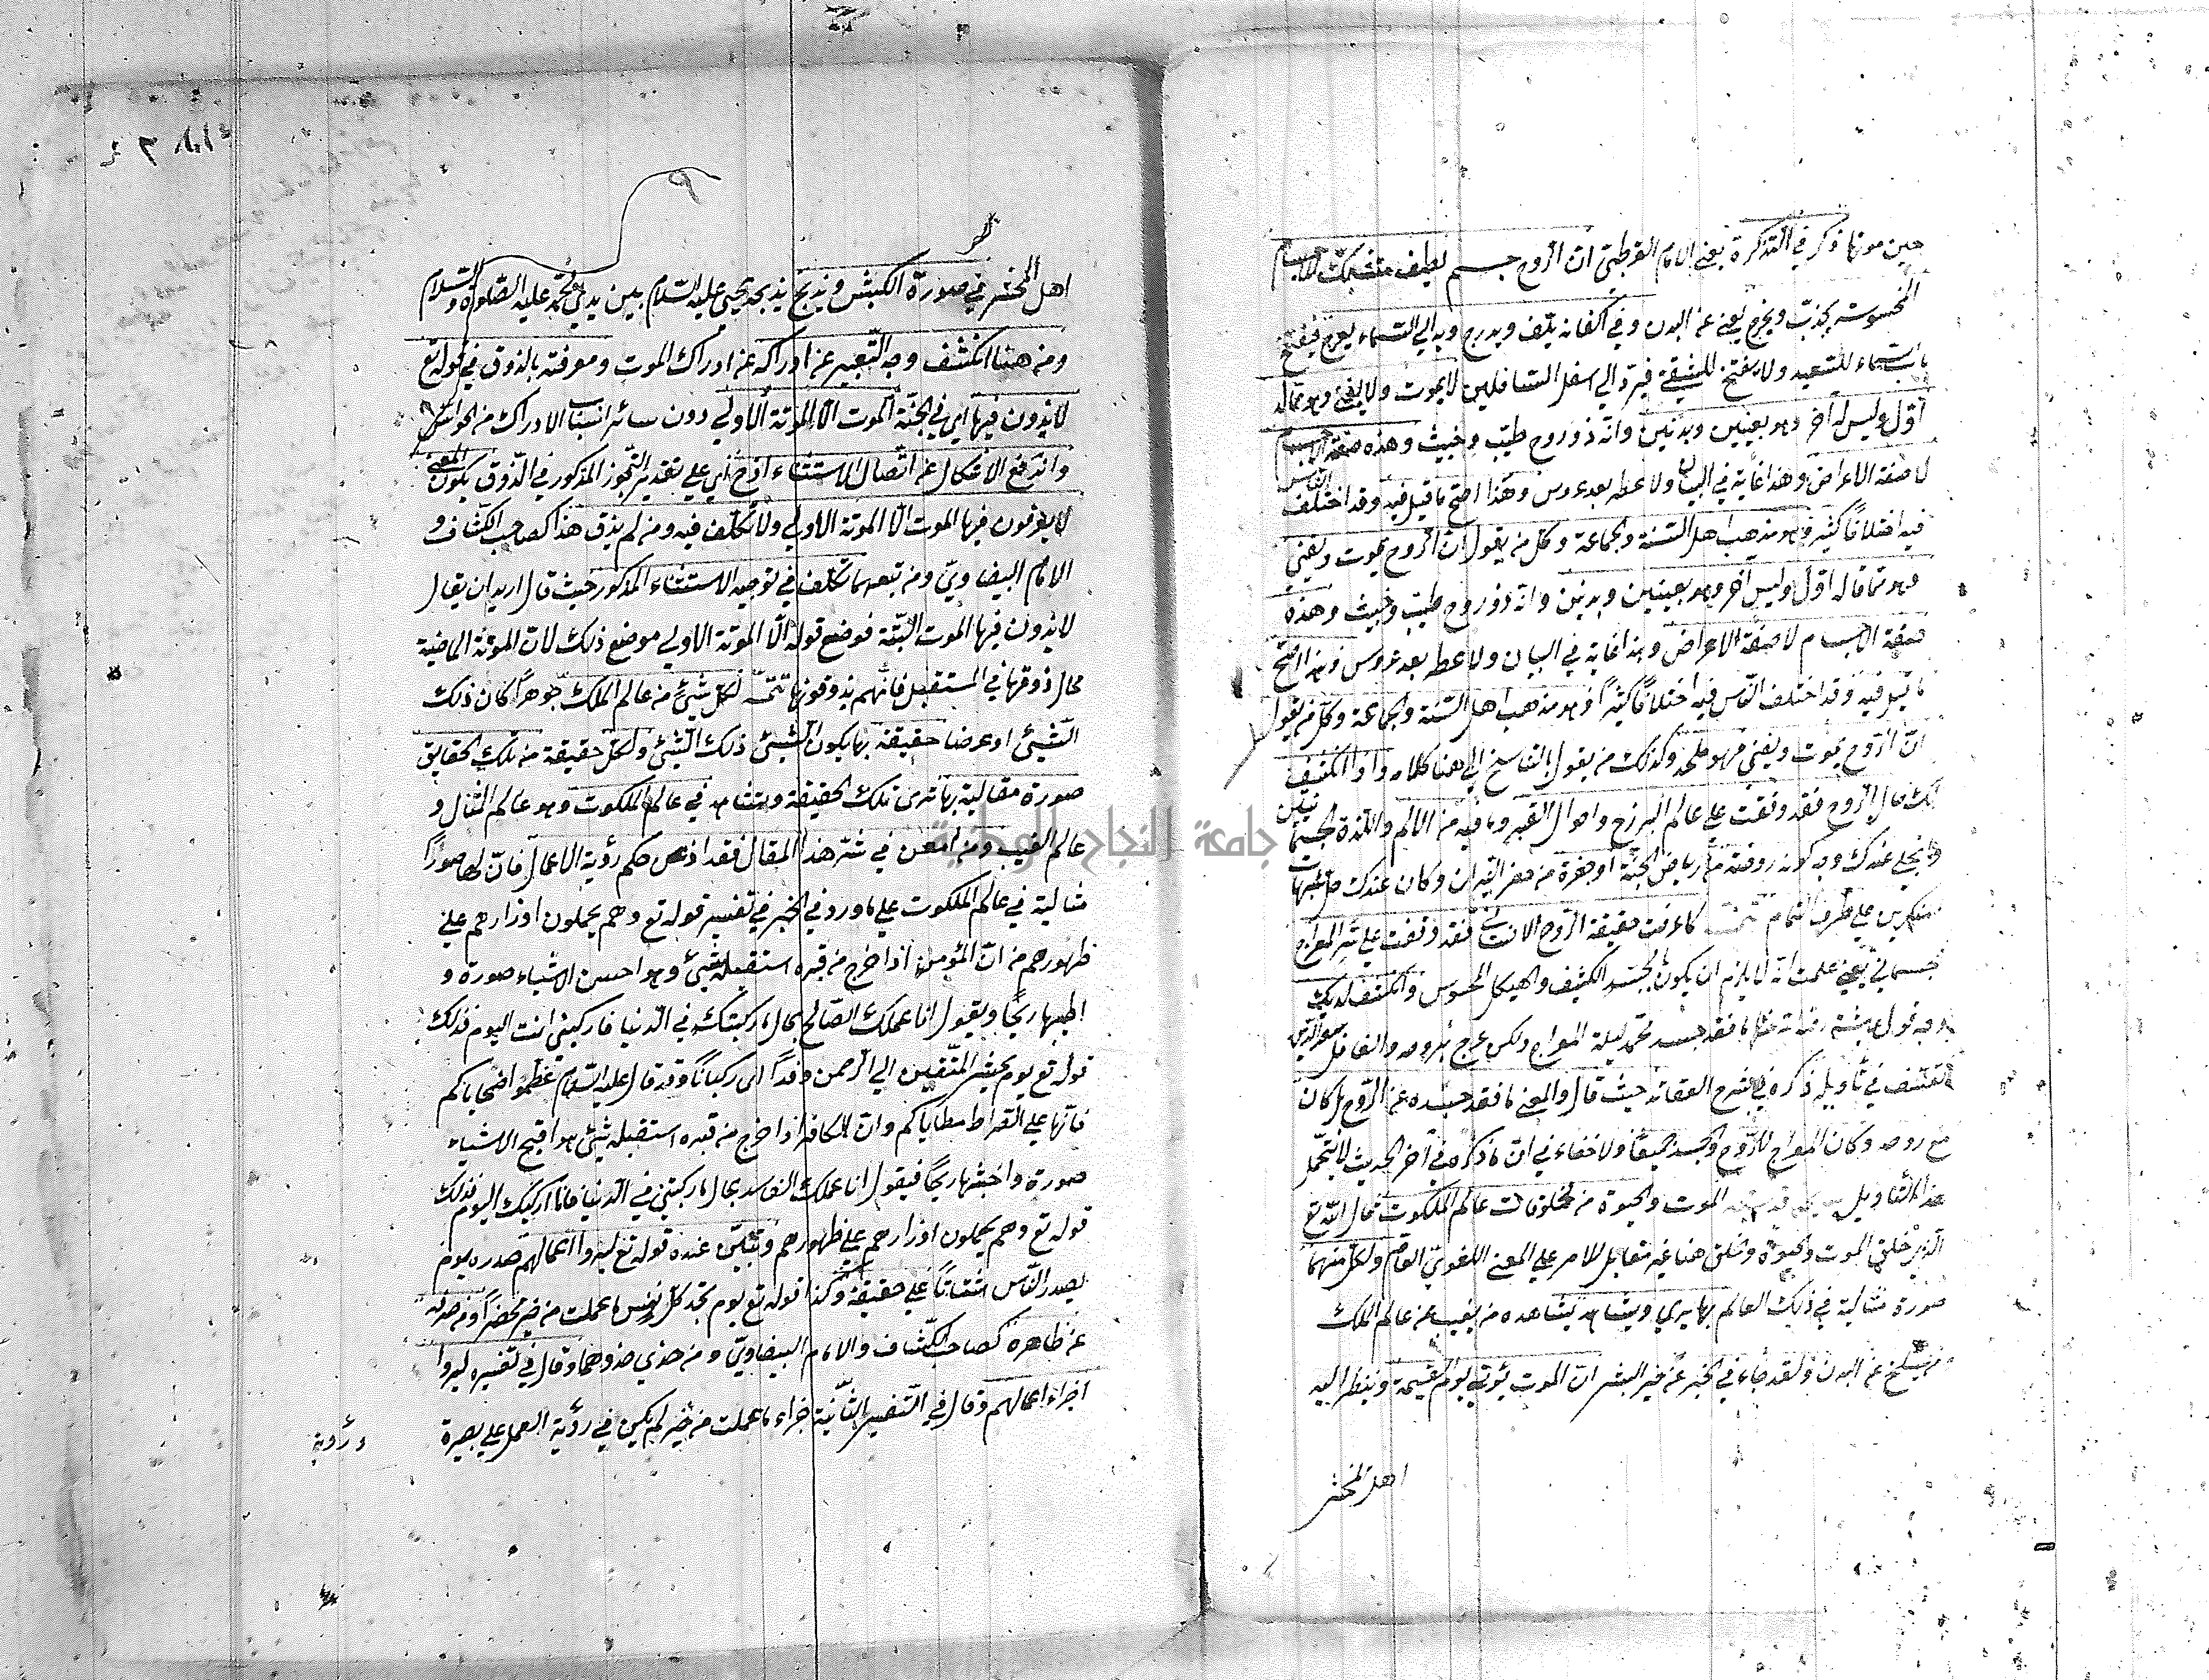 حين موتها ذكر في التذكرة يعني الامام القرطبي ان الروح جسم لطيف متشبك للاجسام
المحسوسة يجذب ويخرج يعني عن البدن وفي اكفانه يلف ويدرج وبه الي السماء يعرج فيفتح
باب السماء للسعيد ولا يفتح للشقي فيرد الي اسفل السافلين لا يموت ولا يفني وهو مما له
اول وليس له آخر وهو بعينين ويدين وانه ذو روح طيب وخبيث وهذه صفة الاجسام
لا صفة الاعراض وهذا غاية في البيان ولا عطر بعد عروس وهذا اصح ما قيل فيه وقد اختلف الناس
فيه اختلافا كثيرا وهو مذهب اهل السنة والجماعة وكل من يقول ان الروح يموت ويفني
وهو مما قاله اول وليس آخر وهو بعينين ويدين وانه ذو روح طيب وخبيث وهذه
صفة الاجسام لا صفة الاعراض وهذا غاية في البيان ولا عطر بعد عروس وهذا اصح
ما قيل فيه وقد اختلف الناس فيه اختلافا كثيرا وهو مذهب اهل السنة والجماعة وكل من يقول
ان الروح يموت ويفني فهو ملحد وكذلك من يقول بالتناسخ الي هنا كلامه واذا انكشف
لك حال الروح فقد وقفت علي عالم البرزخ واحوال القبر وما فيه من الالم واللذة الجسمانيين
وانجلي عندك وجه كونه روضة من رياض الجنة او حفرة من حفر النيران وكان عندك شبهات
المنكرين علي طرف الثمام تتمة كما عرفت حقيقة الروح الانساني فقد وقفت علي سر المعراج
الجسماني يعني علمت انه لا يلزم ان يكون بالجسد الكثيف والهيكل المحسوس وانكشف لديك
وجه قول عايشة رضي الله عنها ما فقد جسد محمد ليلة المعراج ولكن عرج بروحه والفاضل سعد الدين
تعسف في تأويله ذكره في شرح العقائد حيث قال والمعني ما فقد جسده عن الروح بل كان
مع روحه وكان المعراج للروح والجسد جميعا ولا خفاء في ان ما ذكره في آخر الحديث لا يتحمل
هذا التأويل الموت والحيوة من مخلوقات عالم الملكوت قال الله تع
الذي خلق الموت والحيوة والخلق هنا غير مقابل للامر علي المعني اللغوي العام ولكل منهما
صورة مثالية في ذلك العالم بها يري ويشاهد يشاهده من يغيب عن عالم الملك
وينسلخ عن البدن ولقد جاء في الخبر عن خير البشر ان الموت يؤتي يوم القيمة وينظر اليه
اهل المحشر
اهل المحشر في صورة الكبش ويذبح يذبحه يحيي عليه السلام بين يدي محمد عليه الصلوة والسلام
ومن هنا انكشف وجه التعبير عن ادراكه عن ادراك الموت ومعرفته بالذوق في قوله تع
لا يذوقون فيها اي في الجنة الموت الا الموتة الاولي دون سائر اسباب الادراك من الحواس
واندفع الاشكال عن اتصال الاستثناء اذ ح اي علي تقدير التجوز المذكور في الذوق يكون المعني
لا يعرفون فيها الموت الا الموتة الاولي ولا تكلف فيه ومن لم يذق هذا كصاحب الكشاف و
الامام البيضاوي ومن تبعهما تكلف في توجيه الاستثناء المذكور حيث قال اريد ان يقال
لا يذوقون فيها الموت البتة فوضع قوله الا الموتة الاولي موضع ذلك لان الموتة الماضية
محال ذوقها في المستقبل فانهم يذوقونها تتمة لكل شيء من عالم الملك جوهرا كان ذلك
الشيئ او عرضا حقيقة بها يكون الشيئ ذلك الشيئ ولكل حقيقة من تلك الحقايق
صورة مثالية بها تري تلك الحقيقة وتشاهد في عالم الملكوت وهو عالم المثال و
عالم الغيب ومن امعن في سر هذا المقال فقد اذعن حكم رؤية الاعمال فان لها صورا
مثالية في عالم الملكوت علي ما ورد في الخبر في تفسير قوله تع وهم يحملون اوزارهم علي
ظهورهم من ان المؤمن اذا خرج من قبره استقبله شيئ وهو احسن الاشياء صورة و
اطيبها ريحا ويقول انا عملك الصالح طال ما ركبتك في الدنيا فاركبني انت اليوم فذلك
قوله تع يوم نحشر المتقين الي الرحمن وفدا اي ركبانا وقد قال عليه السلام عظموا ضحاياكم
فانها علي الصراط مطاياكم وان الكافر اذا خرج من قبره استقبله شيئ هو اقبح الاشياء
صورة واخبثها ريحا فيقول انا عملك الفاسد طال ما ركبتني في الدنيا فانا اركبك اليوم فذلك
قوله تع وهم يحملون اوزارهم علي ظهورهم وتبين عنده قوله تع ليروا اعمالهم صدره يوم
يصدر الناس اشتاتا علي حقيقته وكذا قوله تع يوم تجد كل نفس ما عملت من خير محضرا ومن صرفه
عن ظاهره كصاحب الكشاف والامام البيضاوي ومن حذي حذوهما وقال في تفسيره ليروا
اجزاء اعمالهم وقال في التفسير الثانية جزاء ما عملت من خير لم يكن في رؤية العمل علي بصيرة
ورؤية